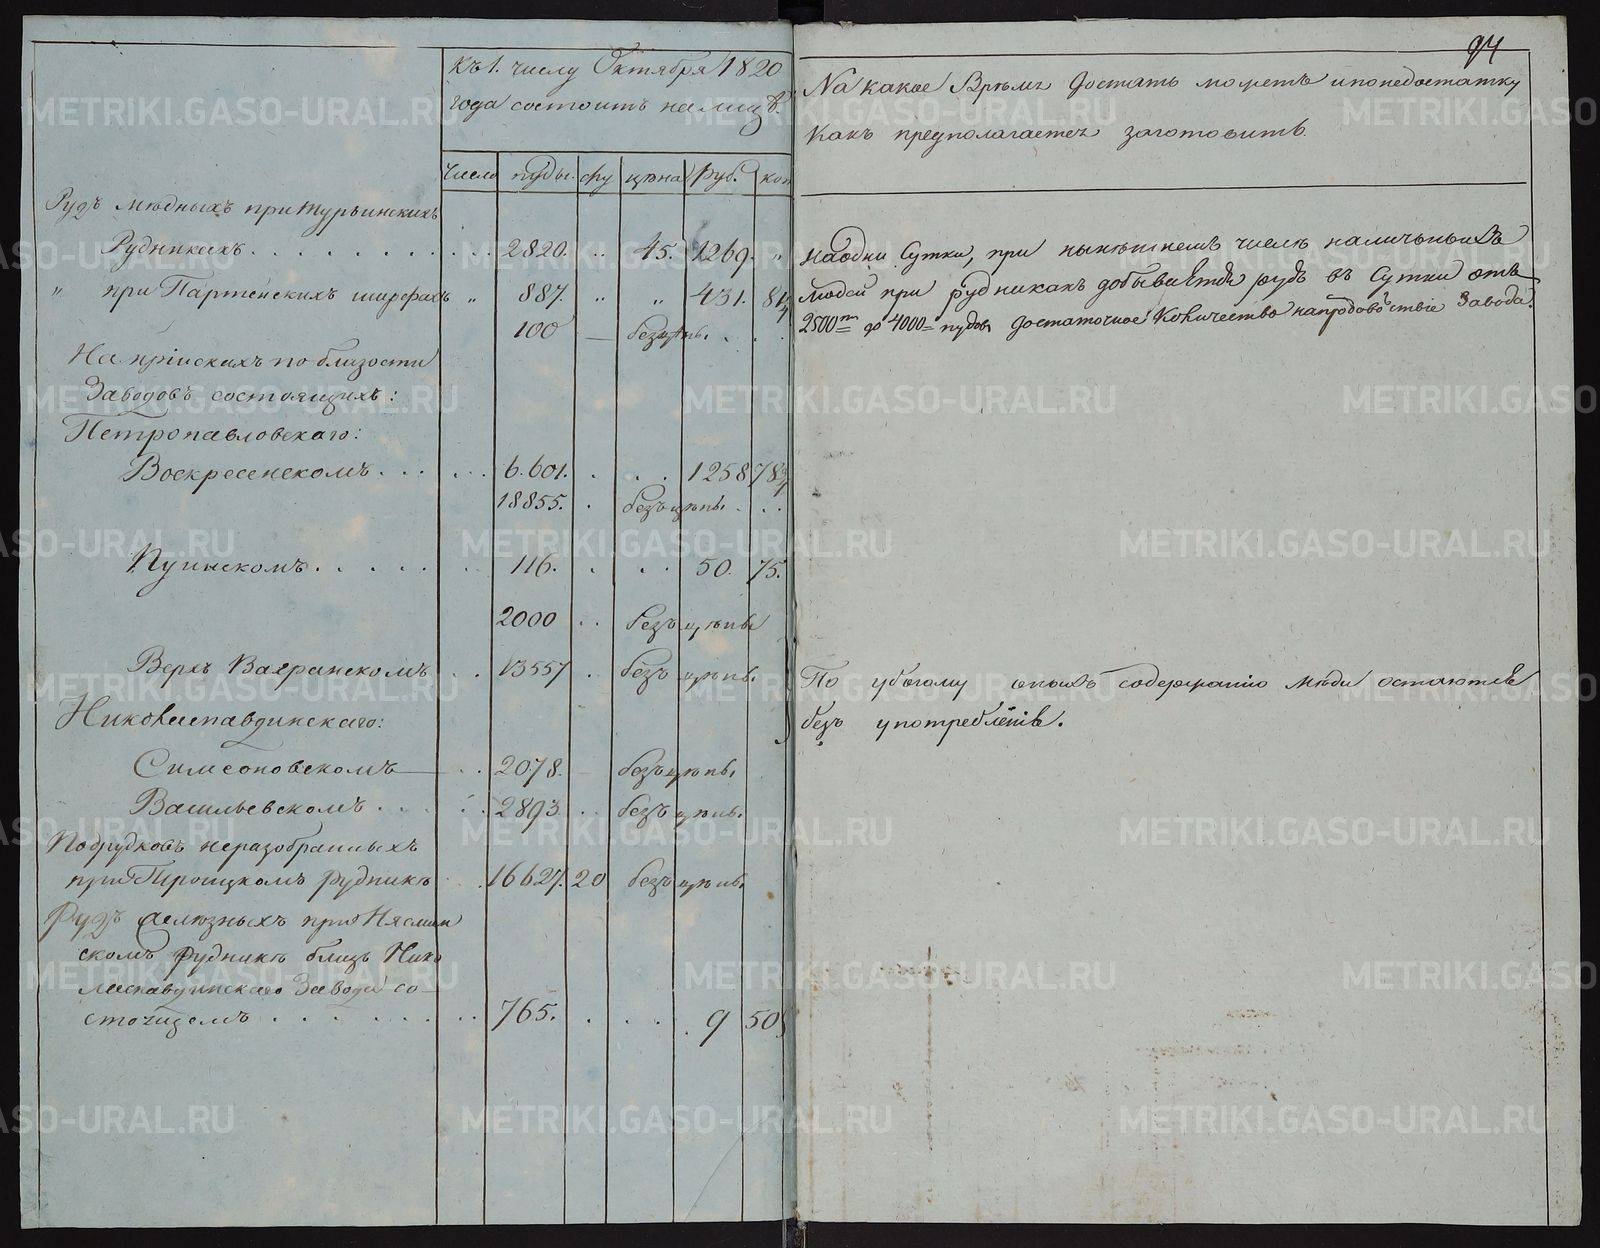 94
Къ 1. числу Октября 1820
года состоитъ на лицѣ.
На какое Время достать можетъ и по недостатку
какъ предполагается заготовить.
Число пуды. фу цѣна Руб. коп
Рудъ мѣдныхъ при Турьинскихъ
Рудникахъ . . . . . . . . . 2820. „ 45. 1269. „
„ при шурфахъ „ 887. „ „ 431. 84
100 — безъ цѣны. . .
на одни Сутки, при нынѣшнемъ числѣ наличныхъ
людей при рудникахъ добывается рудъ въ Сутки отъ
2500 до 4000 пудовъ достаточное Количество на продовольствіе Завода.
На пріискахъ по близости
Заводовъ состоящихъ:
Петропавловскаго:
Воскресенскомъ . . . . . . 6.601. . . . 1258 78
18855. . безъ цѣны. . .
. . . . . . 116. . . . 50. 75.
2000 . . безъ цѣны
Верхъ Вагранскомъ . . 13557 . безъ цѣны.
По убогому оныхъ содержанію мѣди остаются
безъ употребленія.
Николаепавдинскаго:
Симеоновскомъ . . 2078. безъ цѣны.
Васильевскомъ . . . . 2893 . . безъ цѣны.
Подрудковъ неразобранныхъ
при Троицкомъ рудникѣ . . 16627. 20 безъ цѣны.
Рудъ желѣзныхъ при
скомъ рудникѣ близъ Нико
лаепавдинскаго Завода со-
стоящемъ . . . . . . . . 765. . . . . 9 50
METRIKI.GASO-URAL.RU